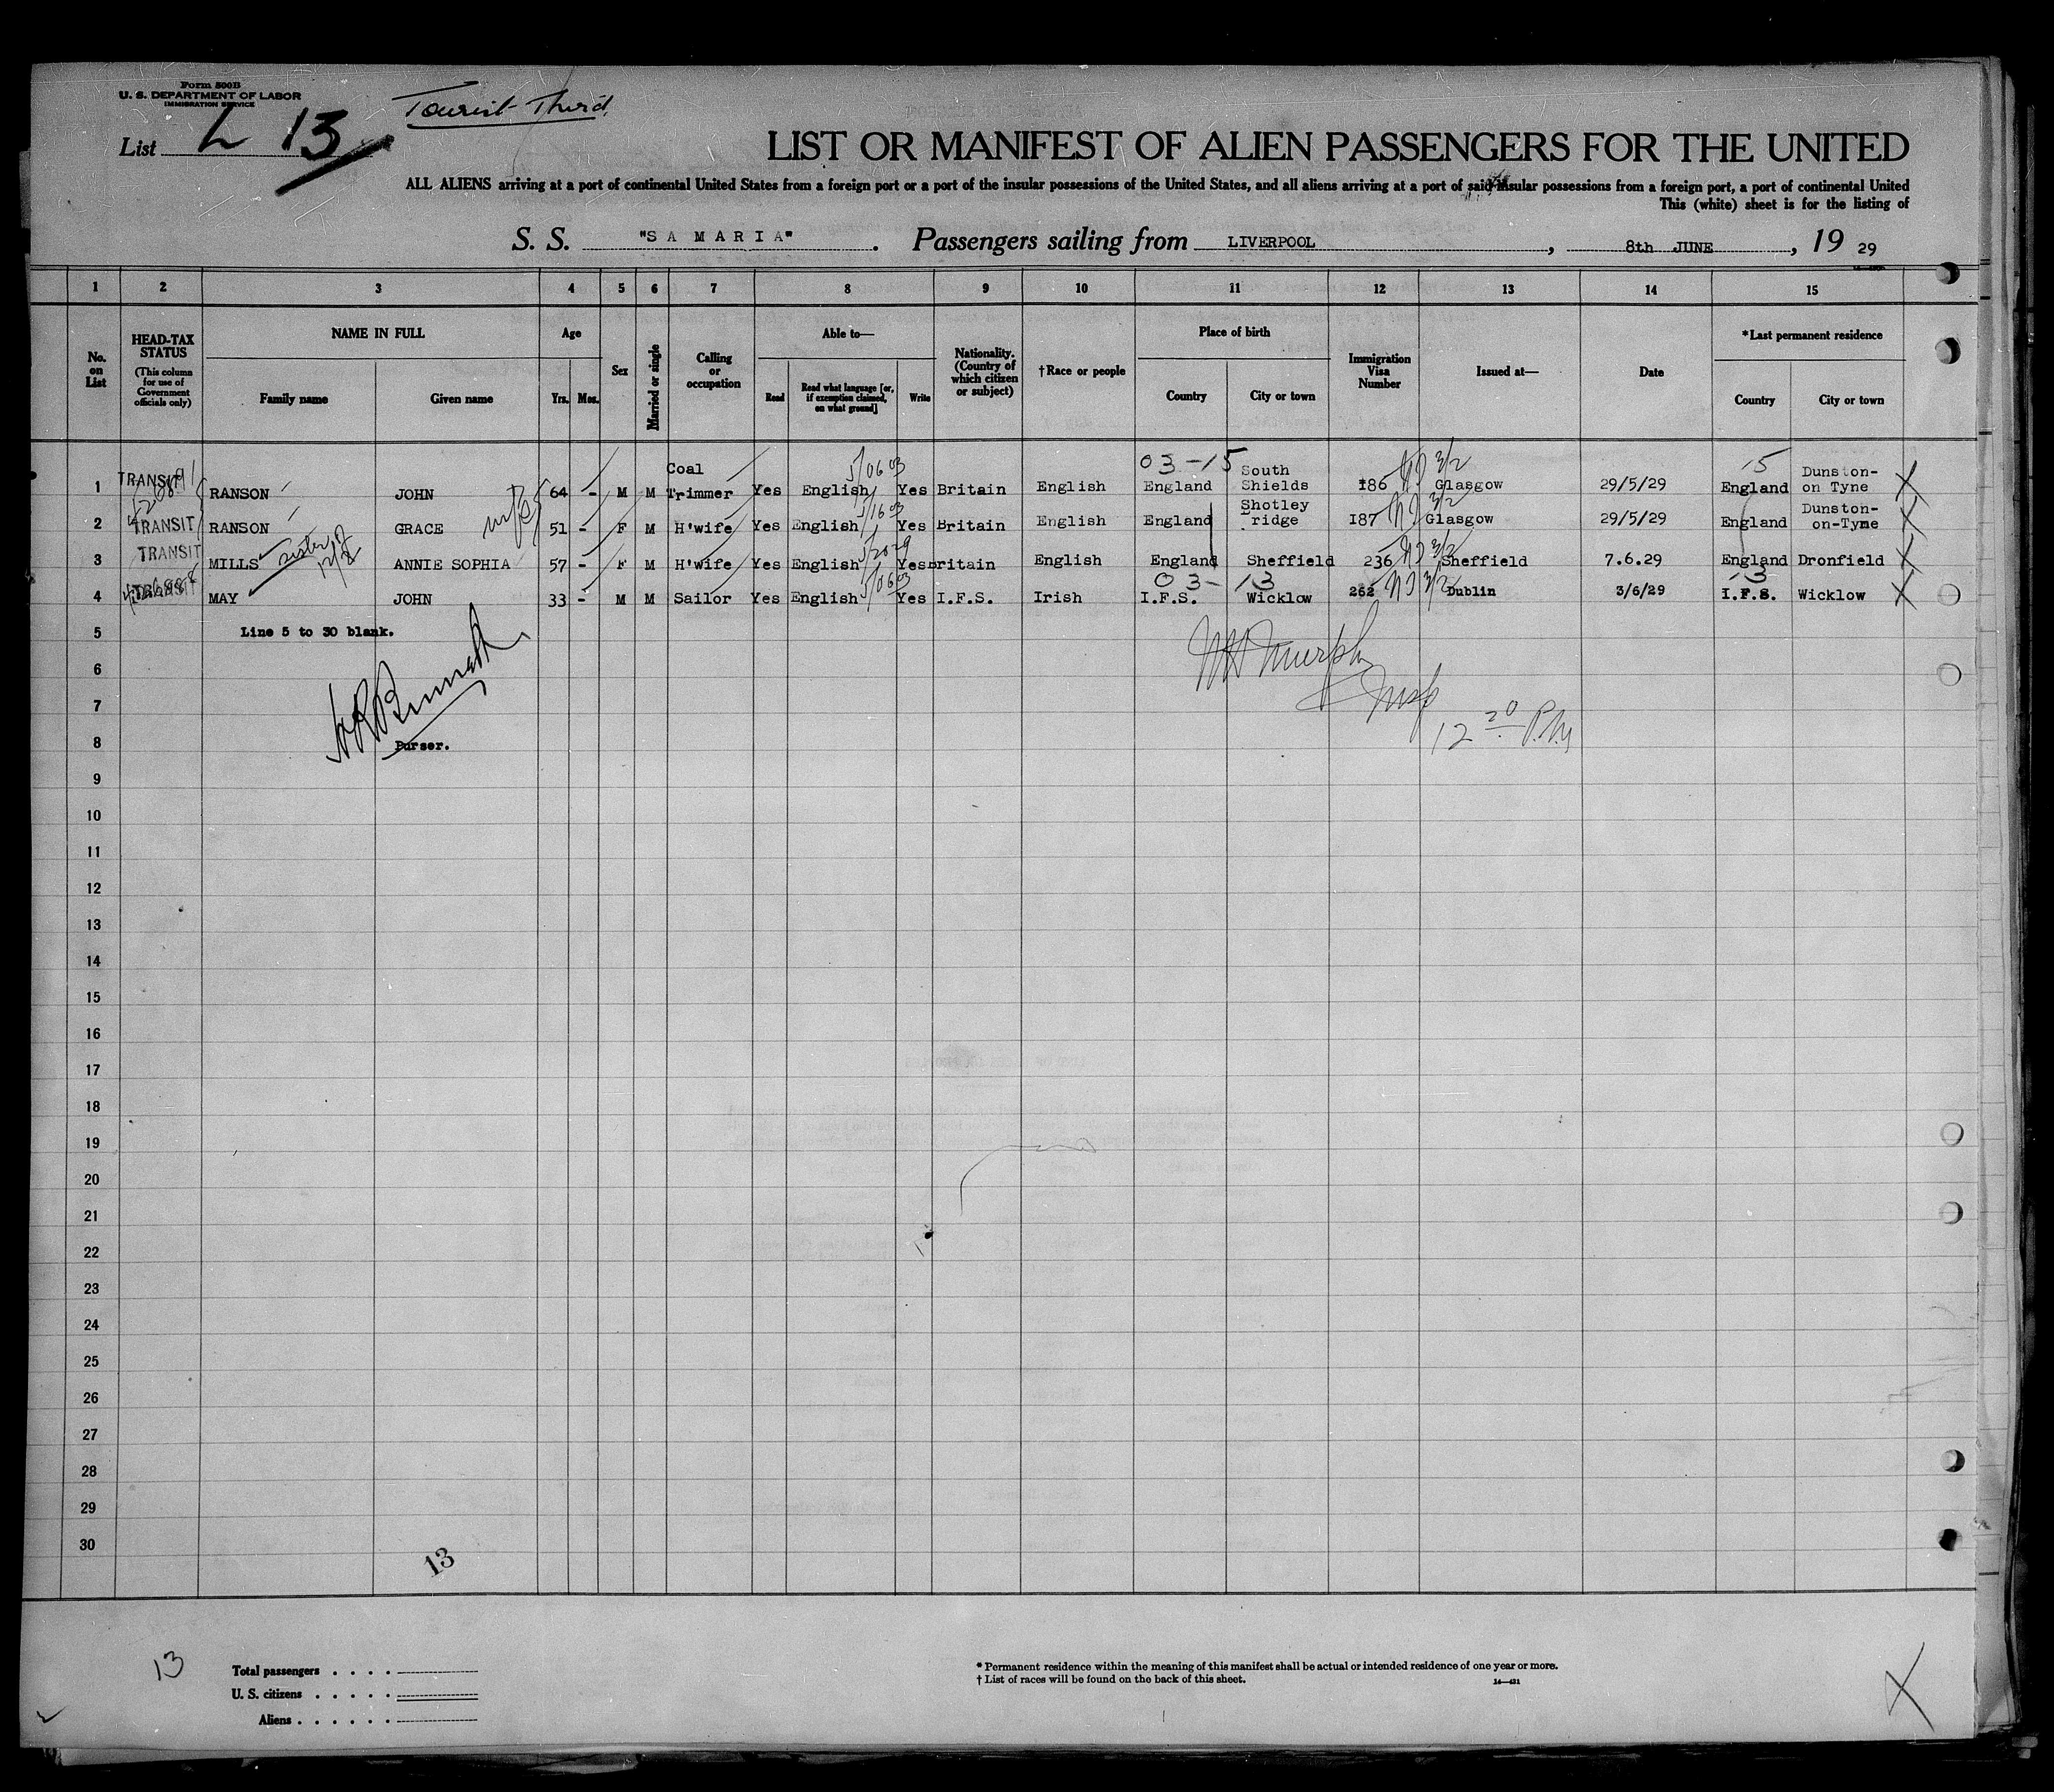 Form 500B
U. S. DEPARTMENT OF LABOR
IMMIGRATION SERVICE
Tourist Third.
List L 13
LIST OR MANIFEST OF ALIEN PASSENGERS FOR THE UNITED
ALL ALIENS arriving at a port of continental United States from a foreign port or a port of the insular possessions of the United States, and all aliens arriving at a port of said insular possessions from a foreign port, a port of continental United
This (white) sheet is for the listing of
S. S. "SAMARIA". Passengers sailing from LIVERPOOL, 8th JUNE, 19 29
1 2 3 4 5 6 7 8 9 10 11 12 13 14 15
No. on List
HEAD-TAX STATUS (This column for use of Government officials only)
NAME IN FULL
Family name Given name
Age
Yrs. Mos.
Sex
Married or single
Calling or occupation
Able to—
Read Read what language [or, if exemption claimed, on what ground] Write
Nationality. (Country of which citizen or subject)
†Race or people
Place of birth
Country City or town
Immigration Visa Number
Issued at—
Date
*Last permanent residence
Country City or town
03-15 15
1 TRANSIT RANSON JOHN 64 - M M Coal Trimmer Yes English Yes Britain English England South Shields 186 Glasgow 29/5/29 England Dunston-on Tyne X
2 TRANSIT RANSON GRACE wife 51 - F M H'wife Yes English Yes Britain English England Shotley ridge 187 Glasgow 29/5/29 England Dunston-on-Tyne X
3 TRANSIT MILLS sister ANNIE SOPHIA 57 - F M H'wife Yes English Yes Britain English England Sheffield 236 Sheffield 7.6.29 England Dronfield X
03-13 13
4 TRANSIT MAY JOHN 33 - M M Sailor Yes English Yes I.F.S. Irish I.F.S. Wicklow 262 Dublin 3/6/29 I.F.S. Wicklow X
5 Line 5 to 30 blank.
6 Murphy
7 Insp
12 20 P.M
8 Purser.
9
10
11
12
13
14
15
16
17
18
19
20
21
22
23
24
25
26
27
28
29
30
13
13
Total passengers . . . .
U. S. citizens . . . . .
Aliens . . . . . .
* Permanent residence within the meaning of this manifest shall be actual or intended residence of one year or more.
† List of races will be found on the back of this sheet.
14—431
X